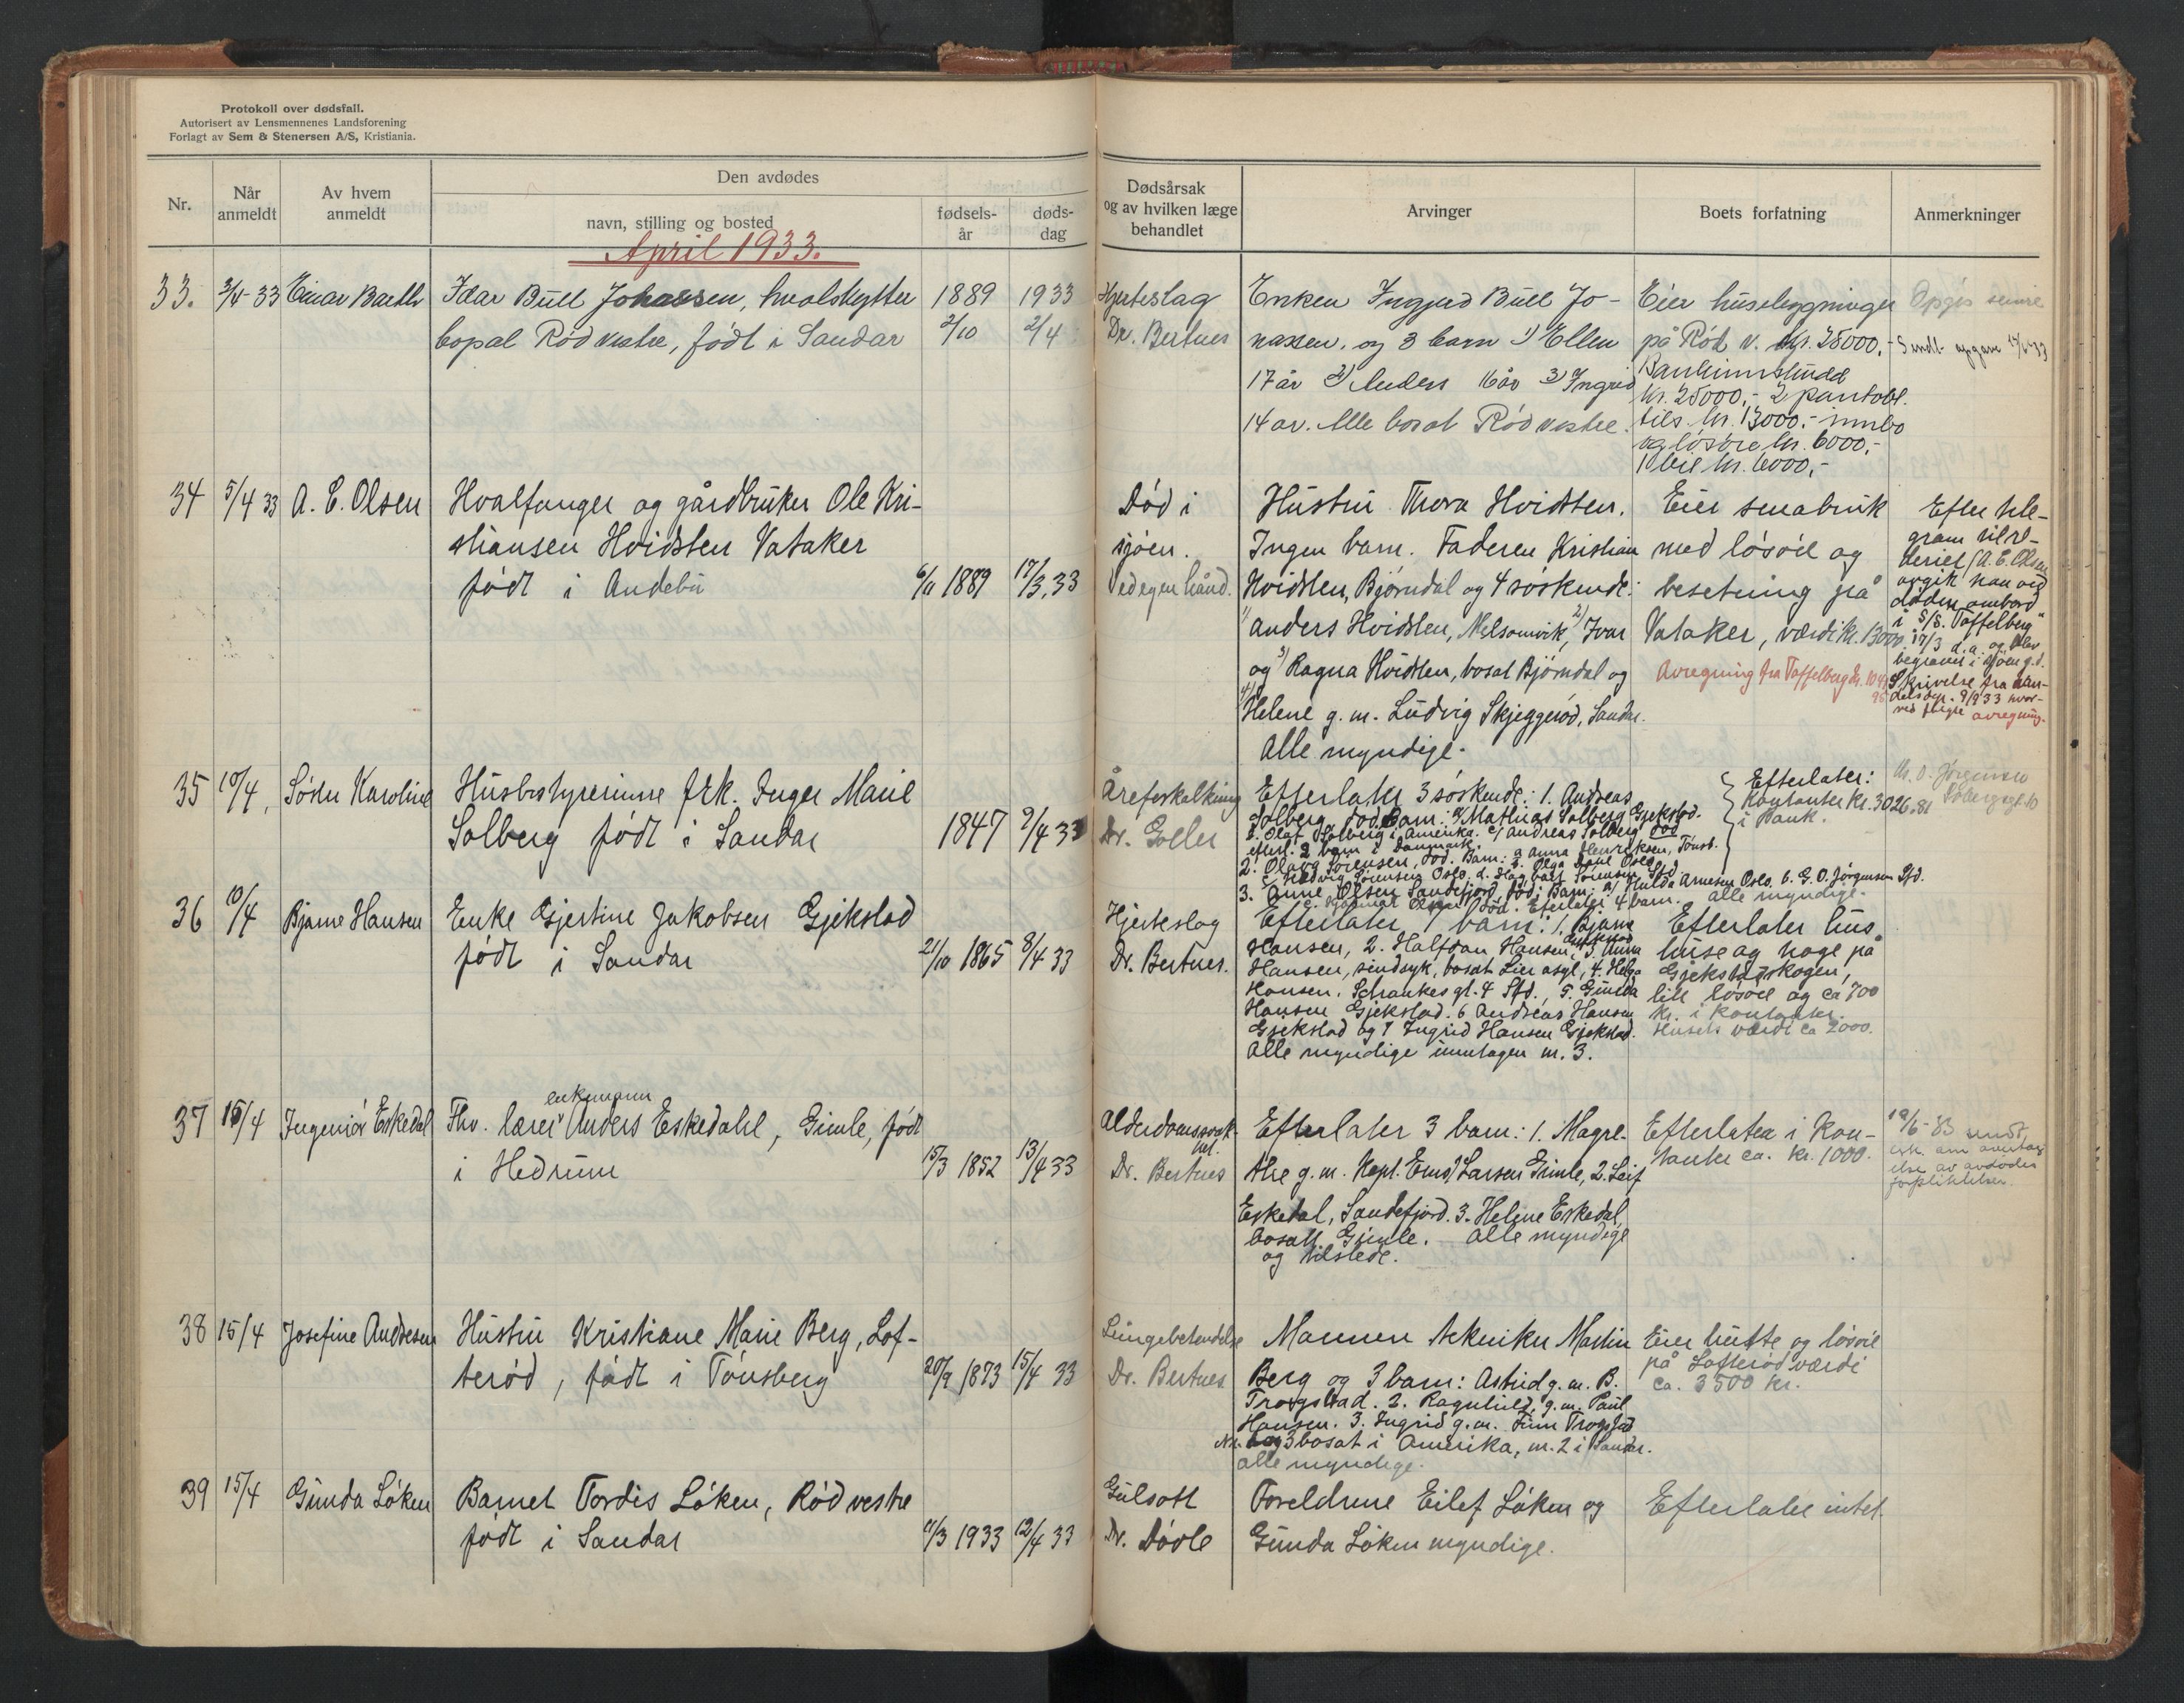 Protokoll over dødsfall.
Autorisert av Lensmennenes Landsforening
Forlagt av Sem & Stenersen A/S, Kristiania.
Nr.
Når anmeldt
Av hvem anmeldt
Den avdødes
navn, stilling og bosted
fødsels-år
døds-dag
Dødsårsak og av hvilken læge behandlet
Arvinger
Boets forfatning
Anmerkninger
April 1933.
33. 3/4-33 Einar Barth
Idar Bull Johassen, hvalskytter
bopal Rød vestre, født i Sandar
1889 2/10
1933 2/4
Hjerteslag
Dr. Bertnes
Enken Ingjerd Bull Jo-
nassen. og 3 barn 1) Ellen
17 år 2) Anders 16 år 3) Ingrid
14 år. Alle bosat Rød vestre.
Eier husebygninger
på Rød v. kr. 25000,-
Bankinnskudd
kr. 25000,- 2 pantobl.
tils. kr. 13000,- innbo
og løsøre kr. 6000,-
1 bil kr. 6000,-
Opgis senere
Sendt opgave
34 5/4 33 A. E. Olsen
Hvalfanger og gårdbruker Ole Kri-
stiansen Hvidsten Vataker
født i Andebu
6/11 1889 17/3.33
Død i
sjøen.
Ved egen hånd.
Hustru Thora Hvidsten.
Ingen barn. Faderen Kristian
Hvidsten, Bjørndal og 4 søskende:
1) Anders Hvidsten, Nelsonvik, 2) Ivar
og 3) Ragna Hvidsten, bosat Bjørndal og
4) Helene g.m. Ludvig Skjeggerød, Sandar.
Alle myndige.
Eier smabruk
med løsøre og
besetning på
Vataker, værdi kr. 13000.
Avregning fra Taffelberg kr.
Efter tele-
gram til re-
deriet (A. E. Olsen
avgik han ved
døden ombord
i S/S. "Taffelberg"
17/3 d.a. og blev
begravet i sjøen s.d.
Skrivelse fra Han-
delsdep. 9/9 33 hvor-
ved fulgte avregning.
35 10/4, Søster Karoline
Husbestyrerinne frk. Inger Marie
Solberg født i Sandar
1847 9/4 33
Åreforkalkning
Dr. Goller
Efterlater 3 søskende: 1. Andreas
Solberg, død Barn: a/ Mathias Solberg Gjekstad.
b. Olaf Solberg i Amerika. c/ Andreas Solberg død
efterl. 2 barn i Danmark.
2. Olava Sørensen, død. Barn: a Anna Henriksen, Tønsb.
b. Olga Dahl Oslo
c. Hedvig Sørensen Oslo. d. Hagbart Sørensen Sfd
3. Anne Olsen Sandefjord, død; Barn: a/ Hulda Arnesen Oslo. b. G. O. Jørgensen Sfd.
c. Hjalmar Olsen død. Efterlater 4 barn. Alle myndige.
Efterlater:
Kontanter kr. 3026,81
i bank.
Jørgensen
36 10/4 Bjarne Hansen
Enke Gjertine Jakobsen Gjekstad
født i Sandar
21/10 1865 8/4 33
Hjerteslag
Dr. Bertnes.
Efterlater 7 barn: 1. Bjarne
Hansen, 2. Halfdan Hansen, Gjekstad 3. Anna
Hansen, sindsyk, bosat Lier asyl, 4. Helga
Hansen. Schankes gt. 4 Sfd., 5. Gunda
Hansen Gjekstad. 6 Andreas Hansen
Gjekstad og 7 Ingrid Hansen Gjekstad.
Alle myndige unntagen nr. 3.
Efterlater hus
huse og hage på
Gjekstadskogen,
litt løsøre og ca 700
kr. i kontanter.
Husets værdi ca 2000.
37 15/4 Ingeniør Eskedal
Fhv. lærer enkemann Anders Eskedahl, Gimle, født
i Hedrum
15/3 1852 13/4 33
Alderdomssvak-
het.
Dr. Bertnes
Efterlater 3 barn: 1. Magre-
the g.m. Kapt. Ernst Larsen Gimle, 2. Leif
Eskedal, Sandefjord. 3. Helene Eskedal,
bosatt Gimle. Alle myndige
og tilstede.
Efterlater i kon-
tanter ca. kr. 1000.
19/6-33 sendt
erk. om overtag
else av avdødes
forpliktelser.
38 15/4 Josefine Andresen
Hustru Kristiane Marie Berg, Lof-
terød, født i Tønsberg
20/9 1873 15/4 33
Lungebetendelse
Dr. Bertnes
Mannen tekniker Martin
Berg og 3 barn: Astrid g.m. B.
Trovgstad. 2. Ragnhild, g.m. Paul
Hansen. 3. Ingrid g.m. Finn Trogstad
Nr. 1 og 3 bosat i Amerika, nr. 2 i Sandar.
Alle myndige.
Eier hytte og løsøre
på Lofterød værdi
ca. 3500 kr.
39 15/4 Gunda Løken
Barnet Tordis Løken, Rød vestre
født i Sandar
11/3 1933 12/4 33
Gulsott
Dr. Dóvle
Foreldrene Eilef Løken og
Gunda Løken myndige.
Efterlater intet.